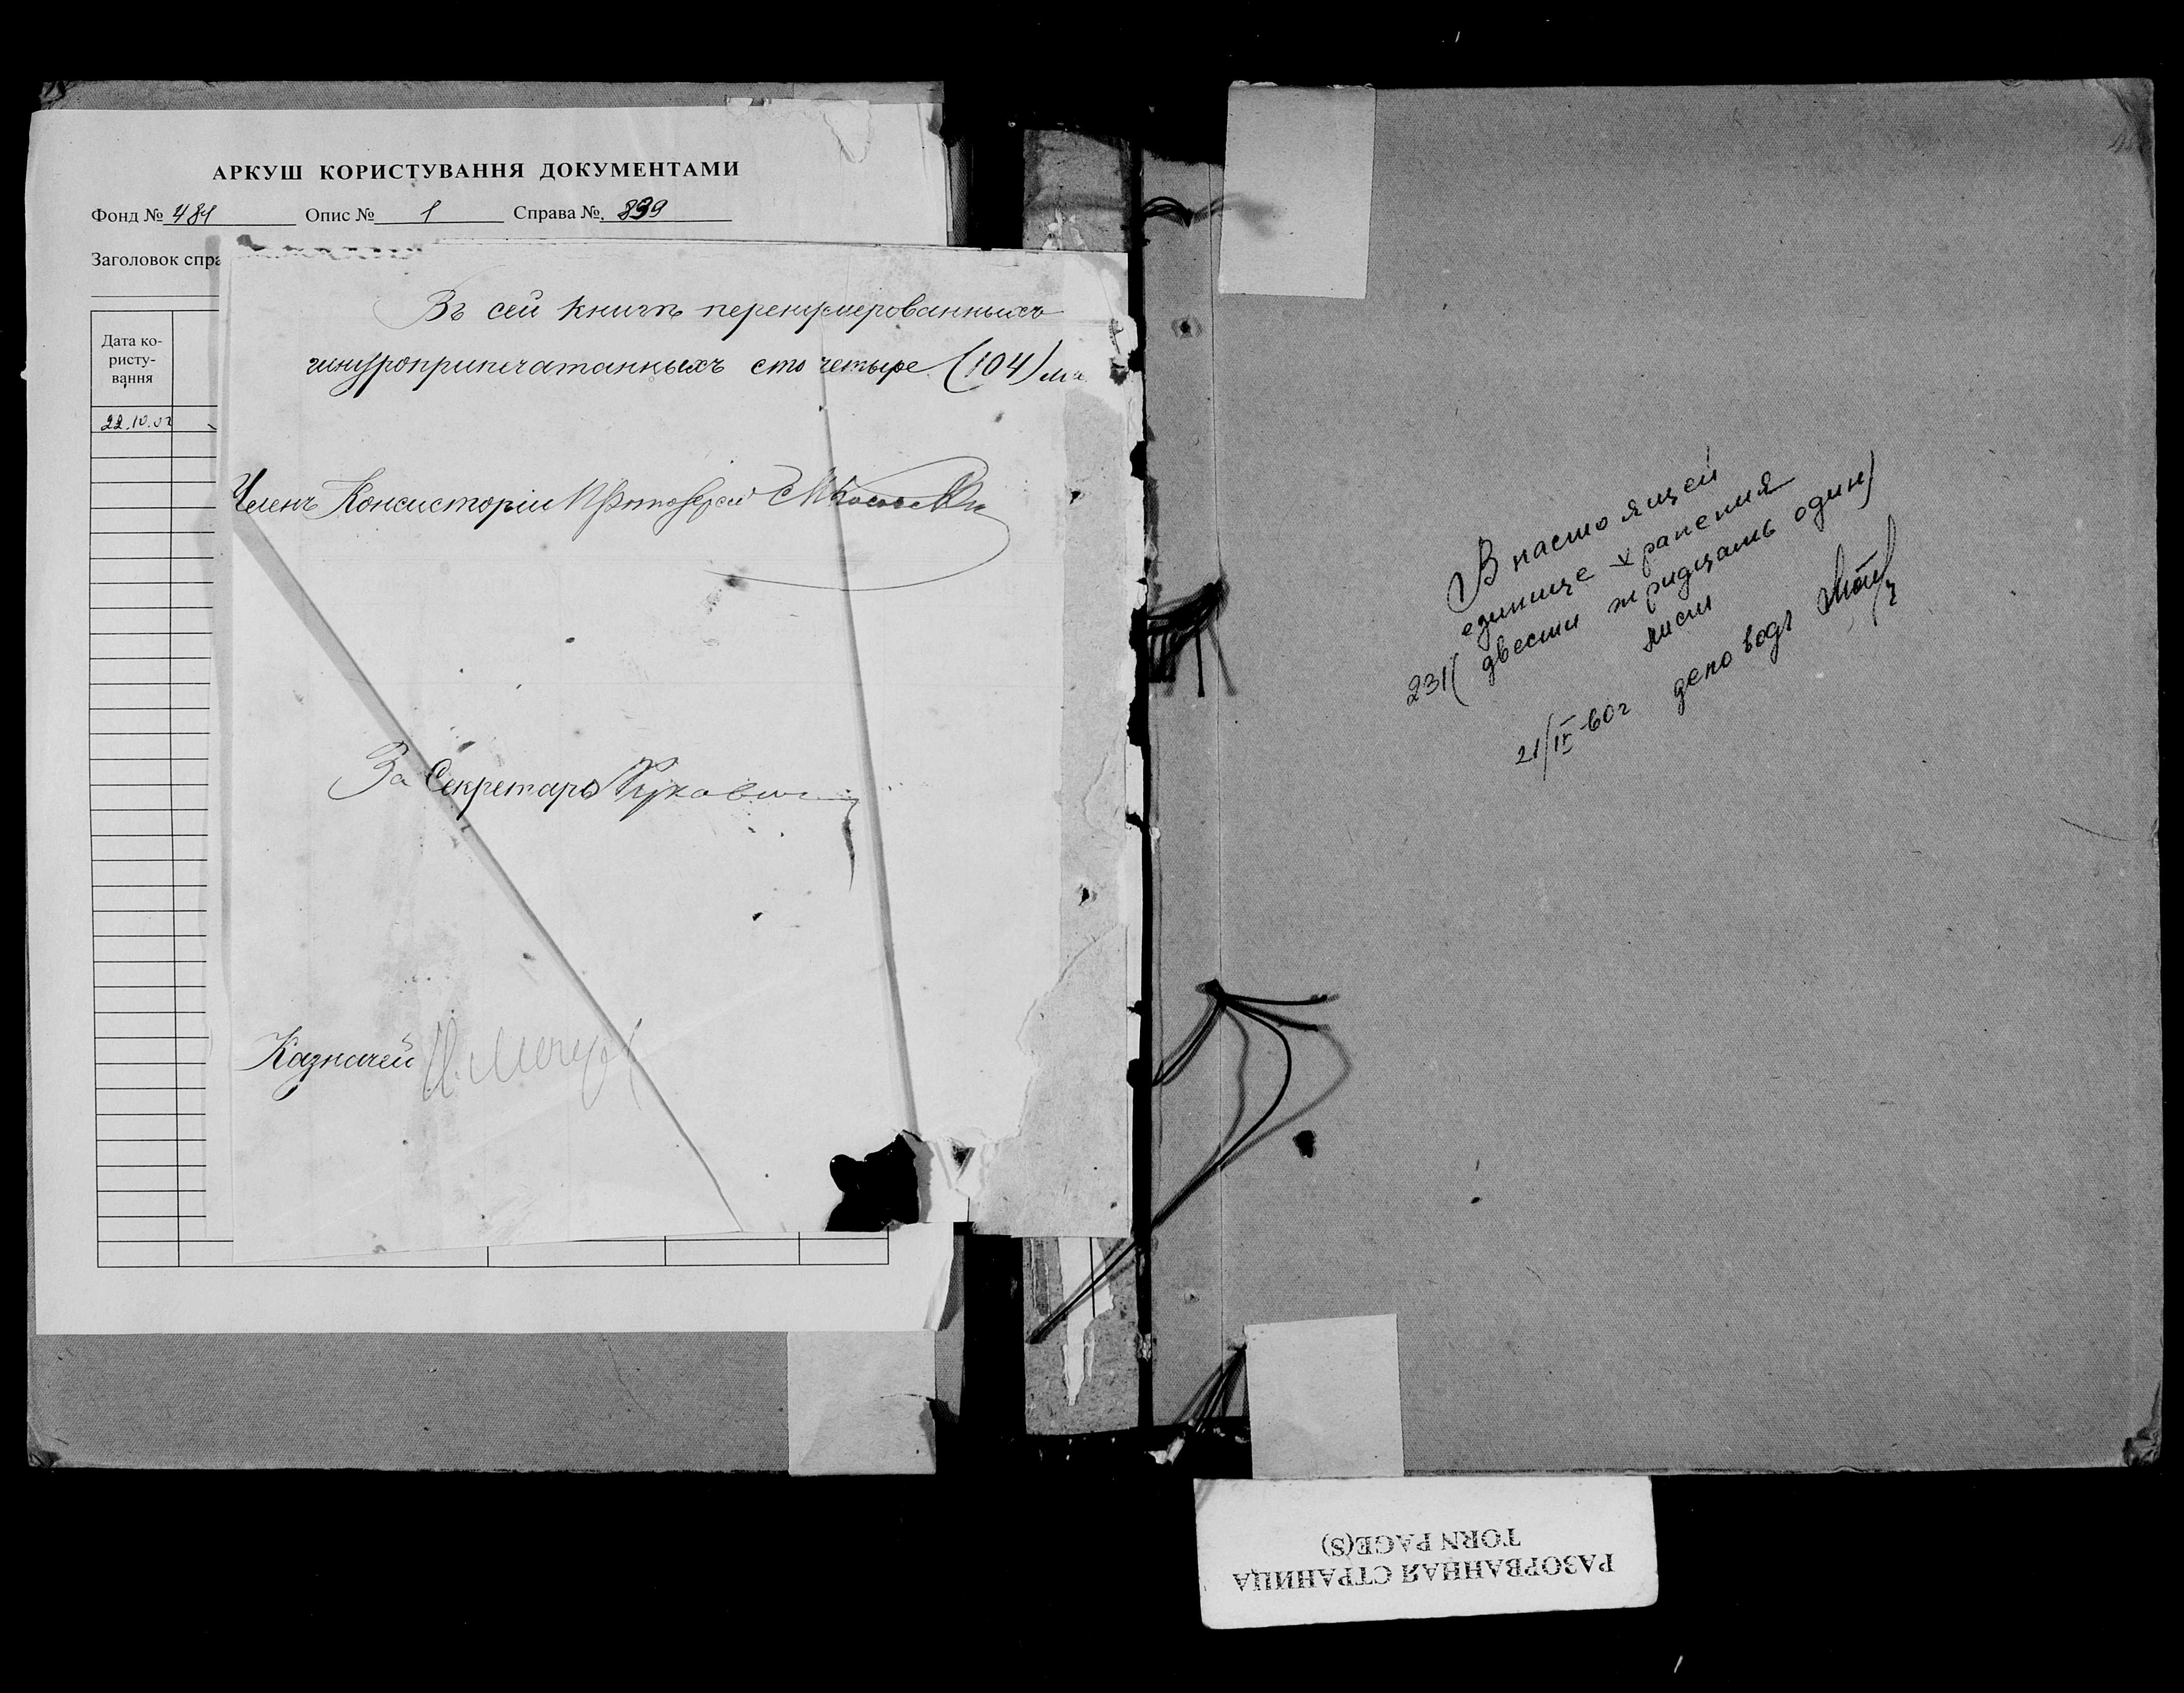 АРКУШ КОРИСТУВАННЯ ДОКУМЕНТАМИ
Фонд № 481 Опис № 1 Справа № 899
Заголовок спра
Дата ко-
ристу-
вання
22.10.02
Въ сей книгѣ перенумерованныхъ
шнуроприпечатанныхъ сто четыре (104) ли
Членъ Консисторіи Протоіерей
За Секретаря
Казначей
В настоящей
единице хранения
231 (двести тридцать один)
лист
21/IV-60г деловод
РАЗОРВАННАЯ СТРАНИЦА
TORN PAGE(S)